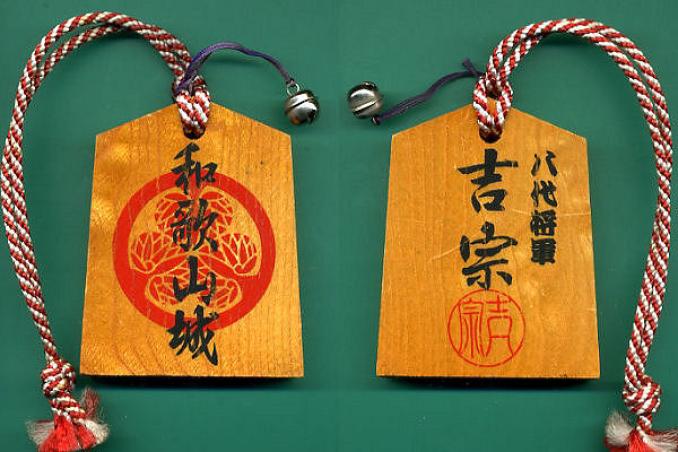 和歌山城
八代将軍
吉宗
吉宗